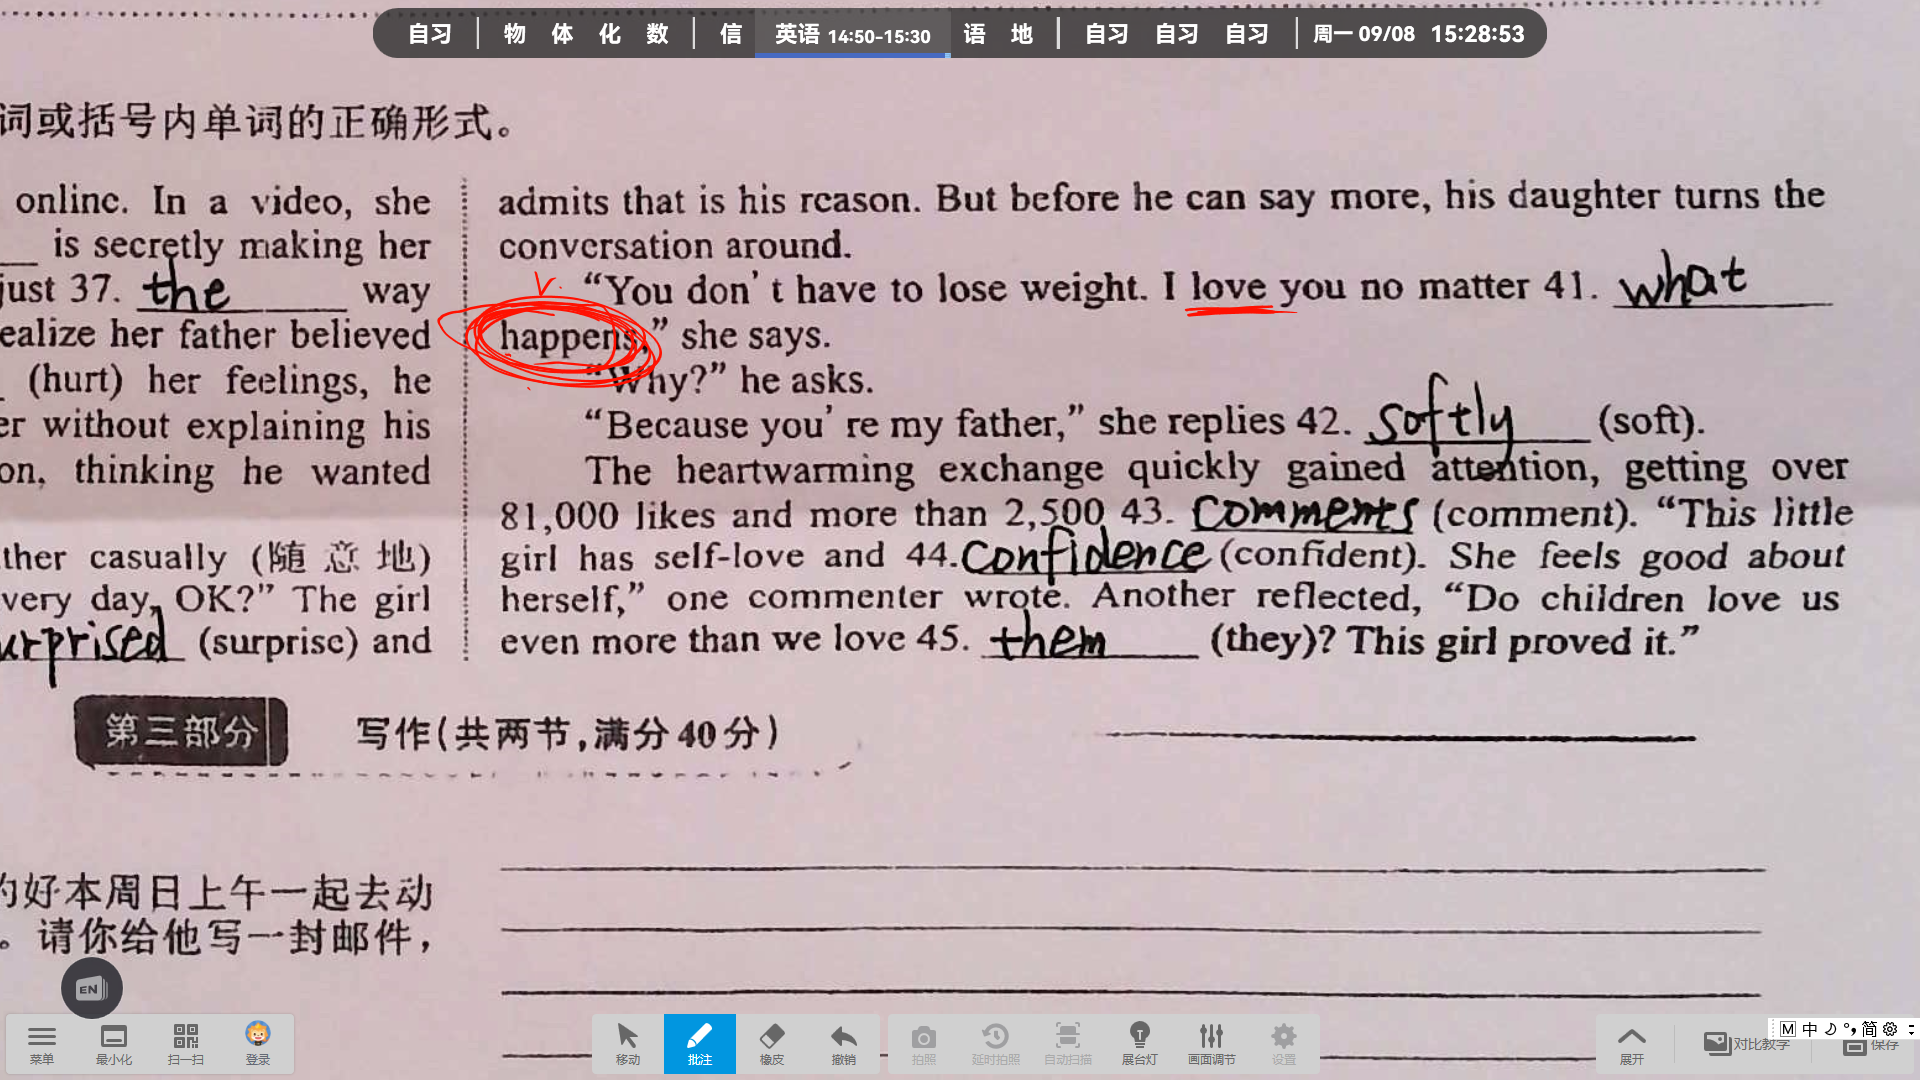 自习 | 物 体 化 数 | 信 英语 14:50-15:30 语 地 | 自习 自习 自习 | 周一 09/08 15:28:53
词或括号内单词的正确形式。
online. In a video, she
is secretly making her
just 37. the way
ealize her father believed
(hurt) her feelings, he
er without explaining his
on, thinking he wanted
ther casually (随意地)
very day, OK?” The girl
urprised (surprise) and
admits that is his reason. But before he can say more, his daughter turns the
conversation around.
“You don't have to lose weight. I love you no matter 41. what
happens,” she says.
“Why?” he asks.
“Because you're my father,” she replies 42. softly (soft).
The heartwarming exchange quickly gained attention, getting over
81,000 likes and more than 2,500 43. comments (comment). “This little
girl has self-love and 44. confidence (confident). She feels good about
herself,” one commenter wrote. Another reflected, “Do children love us
even more than we love 45. them (they)? This girl proved it.”
第三部分 写作(共两节,满分40分)
约好本周日上午一起去动
。请你给他写一封邮件,
EN
菜单 最小化 扫一扫 登录 移动 批注 橡皮 撤销 拍照 延时拍照 自动扫描 展台灯 画面调节 设置 展开 对比教学 保存
M 中 简